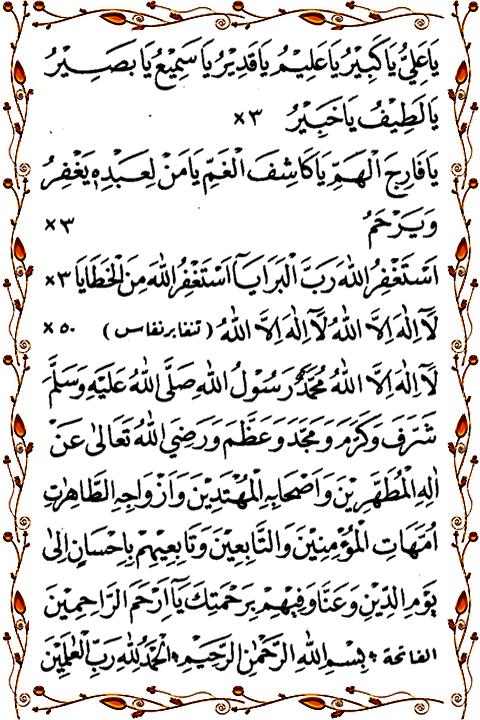 يَاعَلِيُّ يَاكَبِيْرُ يَاعَلِيْمُ يَاقَدِيْرُ يَاسَمِيْعُ يَابَصِيْرُ
يَالَطِيْفُ يَاخَبِيْرُ ×٣
يَافَارِجَ الْهَمِّ يَاكَاشِفَ الْغَمِّ يَامَنْ لِعَبْدِهٖ يَغْفِرُ
وَيَرْحَمُ ×٣
اَسْتَغْفِرُ اللهَ رَبَّ الْبَرَايَا اَسْتَغْفِرُ اللهَ مِنَ الْخَطَايَا ×٣
لَآاِلٰهَ اِلَّا اللهُ لَآاِلٰهَ اِلَّا اللهُ (تنفابرنفاس) ×٥٠
لَآاِلٰهَ اِلَّا اللهُ مُحَمَّدٌ رَسُوْلُ اللهِ صَلَّى اللهُ عَلَيْهِ وَسَلَّمَ
شَرَّفَ وَكَرَّمَ وَمَجَّدَ وَعَظَّمَ وَرَضِيَ اللهُ تَعَالٰى عَنْ
اٰلِهِ الْمُطَهَّرِيْنَ وَاَصْحَابِهِ الْمُهْتَدِيْنَ وَاَزْوَاجِهِ الطَّاهِرَاتِ
اُمَّهَاتِ الْمُؤْمِنِيْنَ وَالتَّابِعِيْنَ وَتَابِعِيْهِمْ بِاِحْسَانٍ اِلٰى
يَوْمِ الدِّيْنِ وَعَنَّا وَفِيْهِمْ بِرَحْمَتِكَ يَآاَرْحَمَ الرَّاحِمِيْنَ
الفاتحة * بِسْمِ اللهِ الرَّحْمٰنِ الرَّحِيْمِ * اَلْحَمْدُ لِلهِ رَبِّ الْعٰلَمِيْنَ